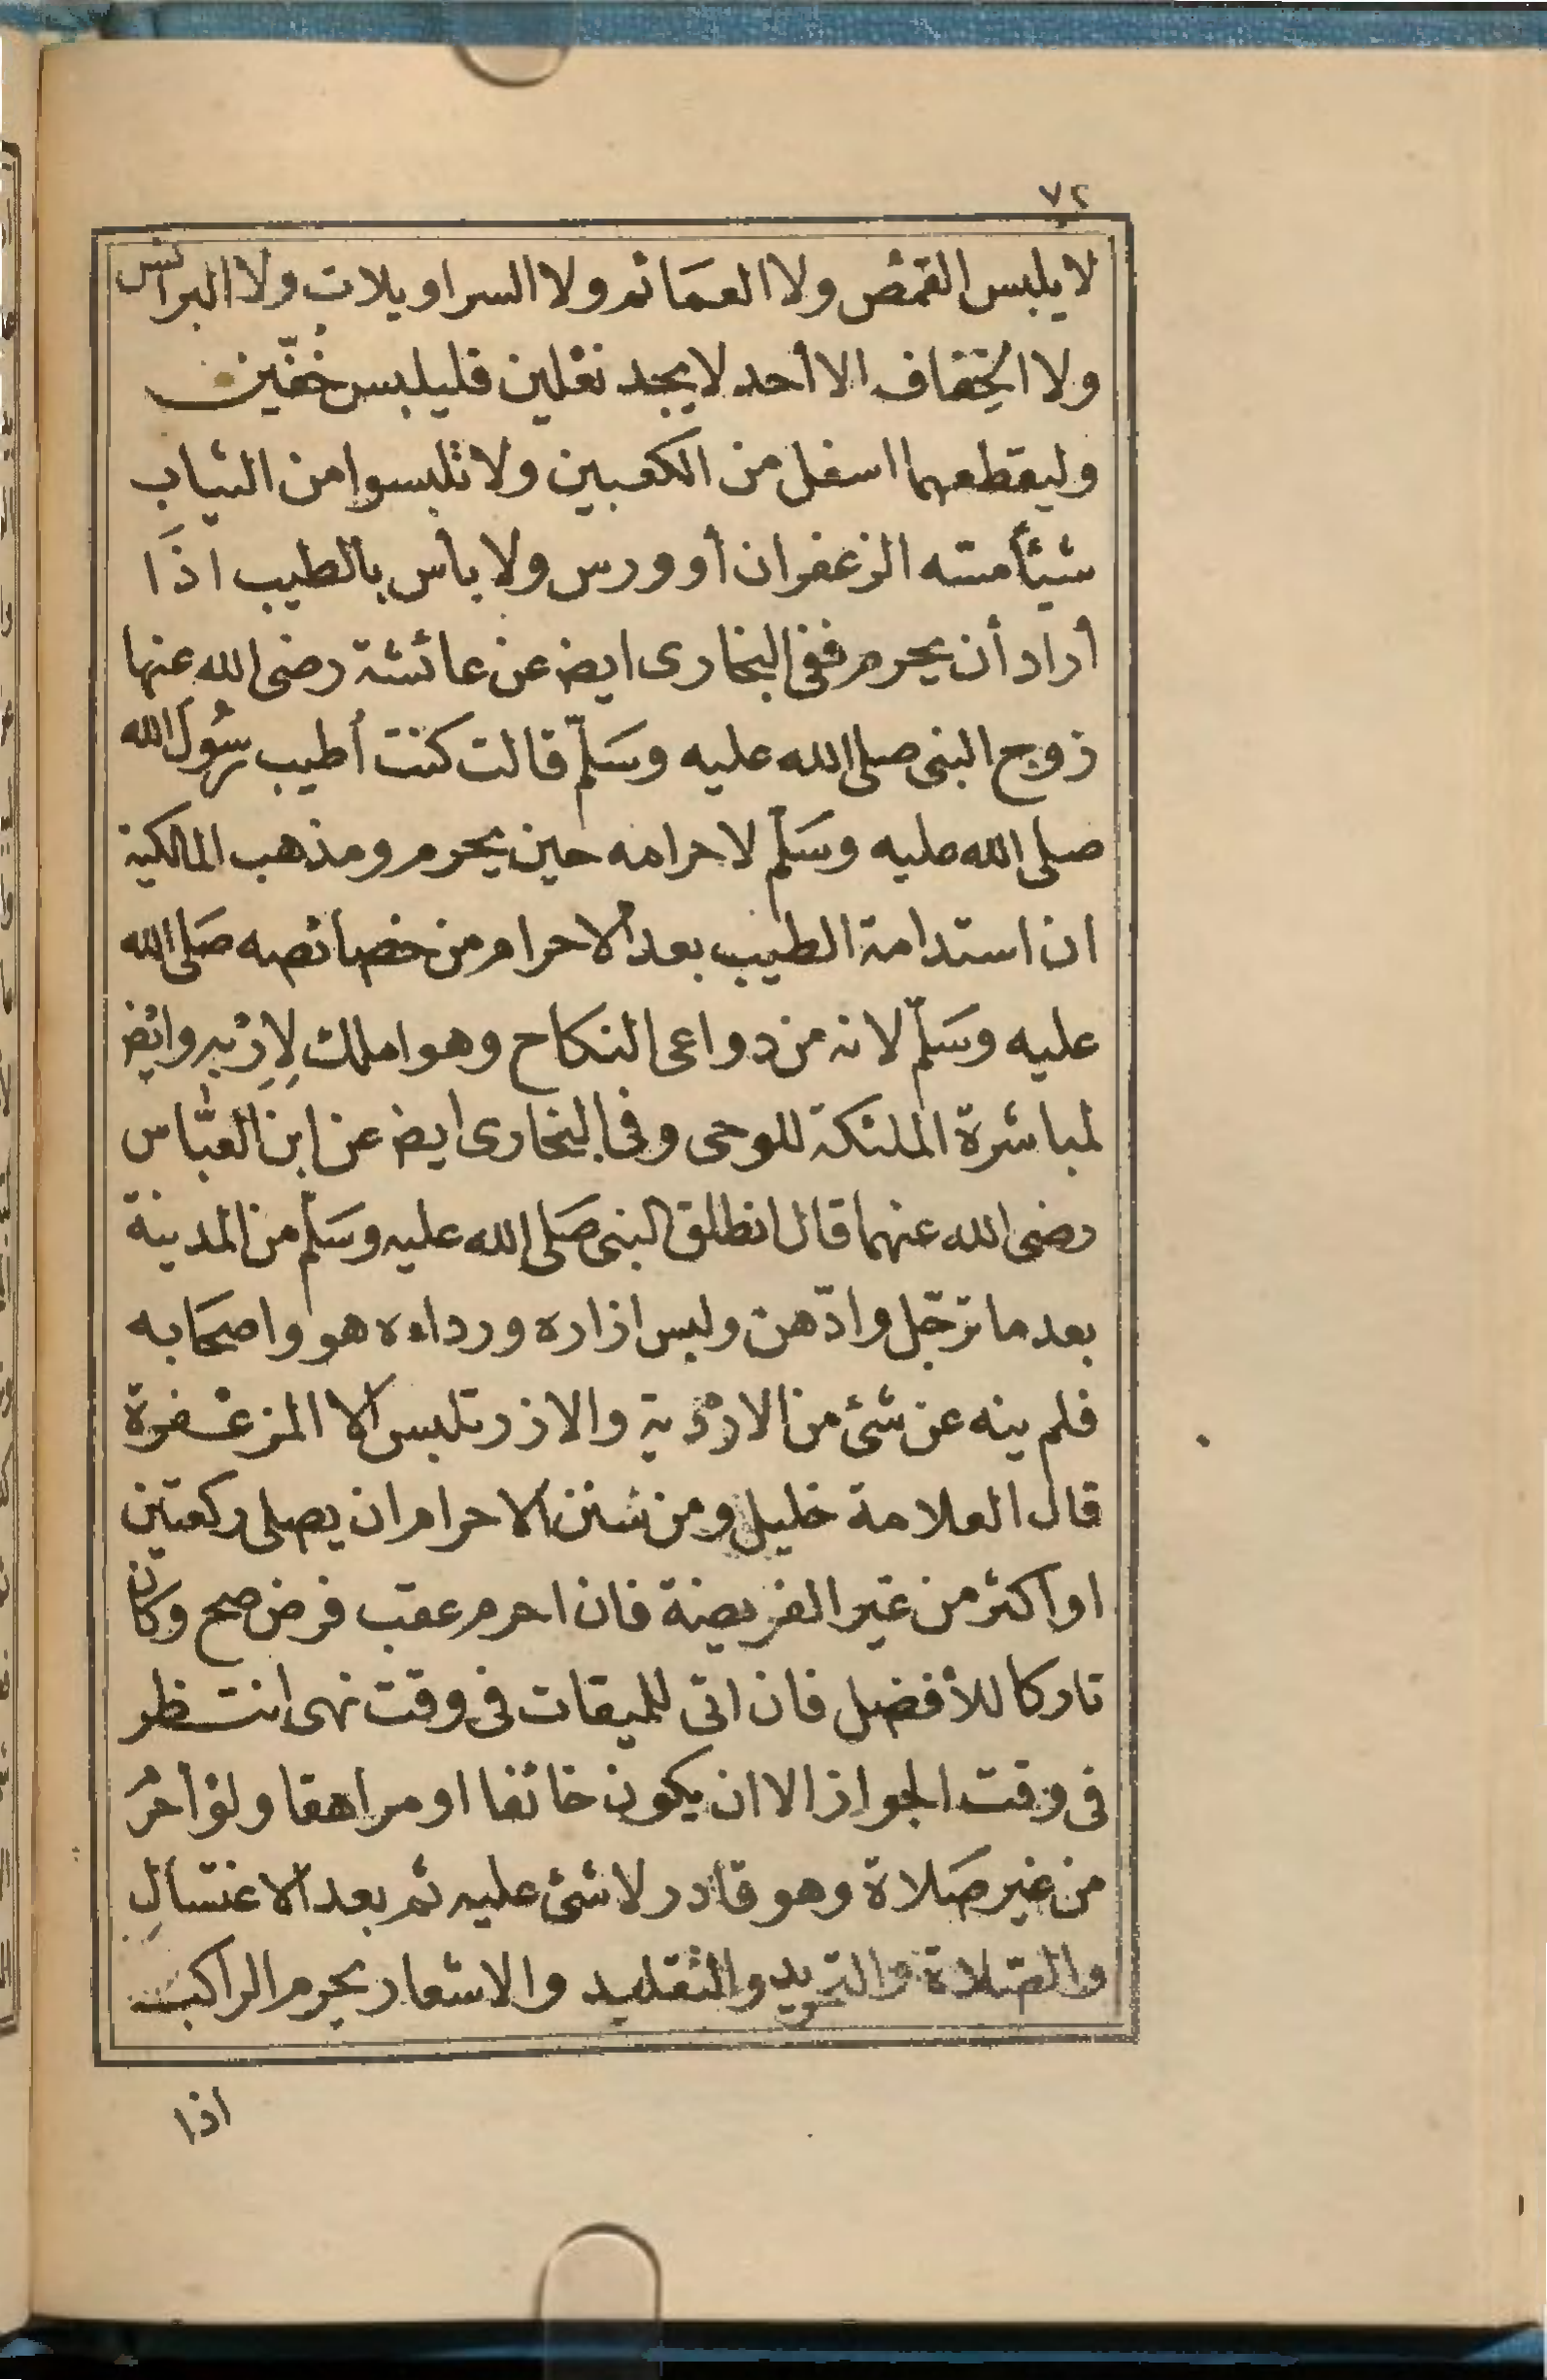 ٧٢
لا يلبس القمص ولا العمائم ولا السراويلات ولا البرانس
ولا الخِفاف الا أحد لا يجد نعلين فليلبس خُفّين
وليقطعهما اسفل من الكعبين ولا تلبسوا من الثياب
شيئاً مسّه الزعفران أو ورس ولا بأس بالطيب اذَا
أراد أن يحرم ففى البخارى ايض عن عائشة رضى الله عنها
زوج النبى صلى الله عليه وسَلّم قالت كنت أطيب رسُولَ الله
صلى الله عليه وسَلّم لاحرامه حين يحرم ومذهب المالكية
ان استدامة الطيب بعد الاحرام من خصائصه صَلى الله
عليه وسَلّم لانه من دواعى النكاح وهو املك لِاِرْبِهِ وايض
لمباشرة الملئكة للوحى وفى البخارى ايض عن ابن العبّاس
رضى الله عنهما قال انطلق النبى صَلى الله عليه وسَلّم من المدينة
بعد ما ترجّل وادّهن ولبس ازاره ورداءه هو واصحَابه
فلم ينه عن شئ من الارْدية والازر تلبس الا المزعْفرة
قال العلامة خليل ومن سُنن الاحرام ان يصلى ركعتين
او اكثر من غير الفريضة فان احرم عقب فرض صح وكان
تاركا للأفضل فان اتى للميقات فى وقت نهى انتظر
فى وقت الجواز الا ان يكون خائفا او مراهقا ولوْ أحْرَم
من غير صَلاة وهو قادر لا شئ عليه ثم بعد الاغتسالِ
والصّلاة والتجريد والتقليد والاشعار يحرم الراكب
اذا